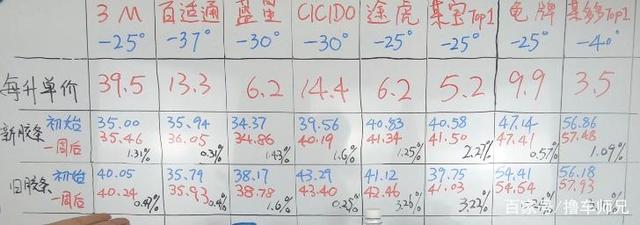 3M 百适通 蓝星 CICIDO 途虎 某宝Top1 龟牌 某多Top1
-25° -37° -30° -30° -25° -25° -25° -40°
每升单价 39.5 13.3 6.2 14.4 6.2 5.2 9.9 3.5
新胶条 初始 35.00 35.94 34.37 39.56 40.83 40.58 47.14 56.86
一周后 35.46 36.05 34.86 40.19 41.34 41.50 47.41 57.48
1.31% 0.31% 1.43% 1.6% 1.25% 2.27% 0.57% 1.09%
旧胶条 初始 40.05 35.79 38.17 43.29 41.12 39.75 54.41 56.18
一周后 40.24 35.93 38.78 43.40 42.46 41.03 54.54 57.93
0.47% 1.6% 0.25% 3.26% 3.22%
百家号/撸车师兄